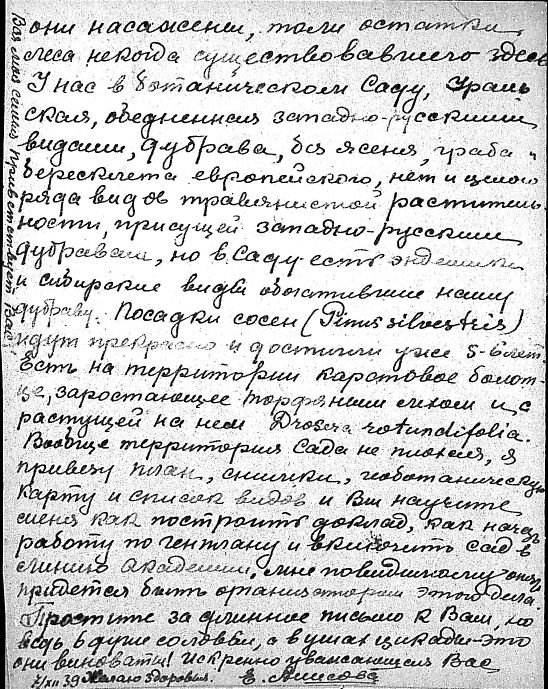 они насажены, толи остатки
леса некогда существовавшего здесь
У нас в ботаническом Саду, Ураль
ская, обедненная западно-русскими
видами, дубрава, без ясеня, граба и
бересклета европейского, нет и целого
ряда видов травянистой раститель-
ности, присущей западно-русским
дубравам, но в Саду есть эндемики
и сибирские виды обогатившие нашу
дубраву. Посадки сосен (Pinus silvestris)
идут прекрасно и достигли уже 5-6 лет.
Есть на территории карстовое болот-
це, заростающее торфяным мхом и с
растущей на нем Drosera rotundifolia.
Вообще территория Сада не плохая, я
привезу план, снимки, геоботаническую
карту и список видов и Вы научите
меня как построить доклад, как начать
работу по генплану и включить сад в
линию Академии, мне повидимому
придется быть организатором этого дела.
Простите за длинное письмо к Вам, но
ведь в душе соловьи, а в ушах цикады-это
они виноваты! Искренно уважающая Вас
2/XII 39 Желаю здоровья. Е.
Вся моя семья приветствует Вас!